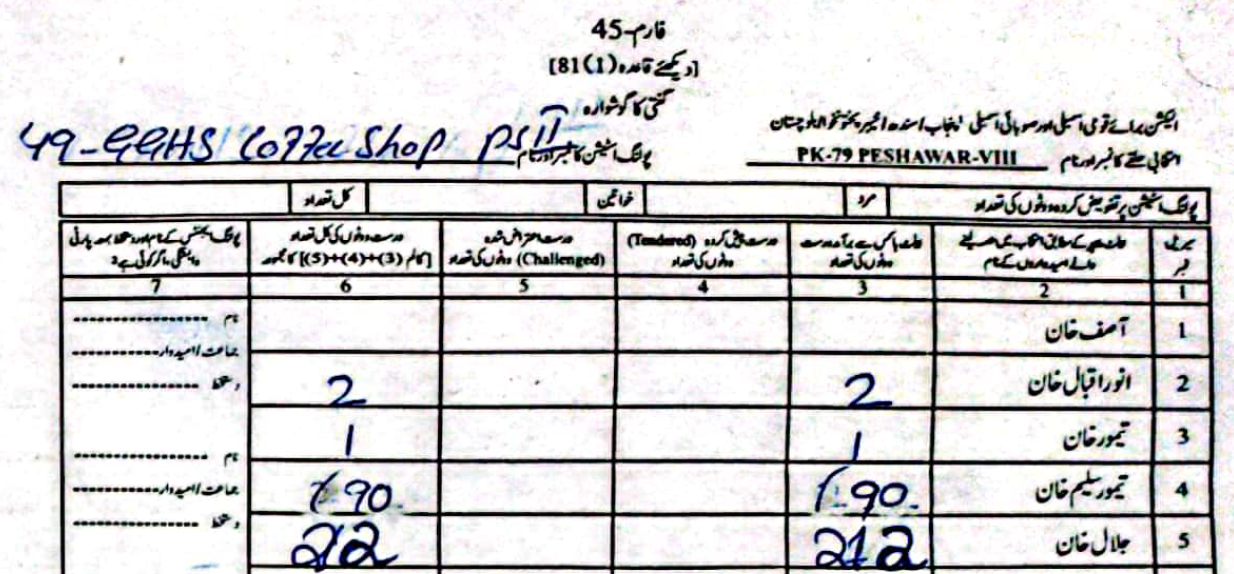 فارم-45
[دیکھئے قاعدہ (1)81]
گنتی کا گوشوارہ
الیکشن برائے قومی اسمبلی اور صوبائی اسمبلی پنجاب/سندھ/خیبر پختونخوا/بلوچستان
انتخابی حلقے کا نمبر اور نام PK-79 PESHAWAR-VIII پولنگ اسٹیشن کا نمبر اور نام 49-GGHS Shop PS II
پولنگ اسٹیشن پر تفویض کردہ ووٹوں کی تعداد مرد خواتین کل تعداد
سیریل نمبر
والے امیدواروں کے نام
ووٹوں کی تعداد
درست پیش کردہ (Tendered) ووٹوں کی تعداد
درست اعتراض شدہ (Challenged) ووٹوں کی تعداد
درست ووٹوں کی کل تعداد [کالم (3)+(4)+(5)] کا مجموعہ
1 2 3 4 5 6 7
1 آصف خان
نام
جماعت/امیدوار
2 انور اقبال خان 2 2
دستخط
3 تیمور خان 1 1
نام
4 تیمور سلیم خان 90 90
جماعت/امیدوار
5 جلال خان
دستخط